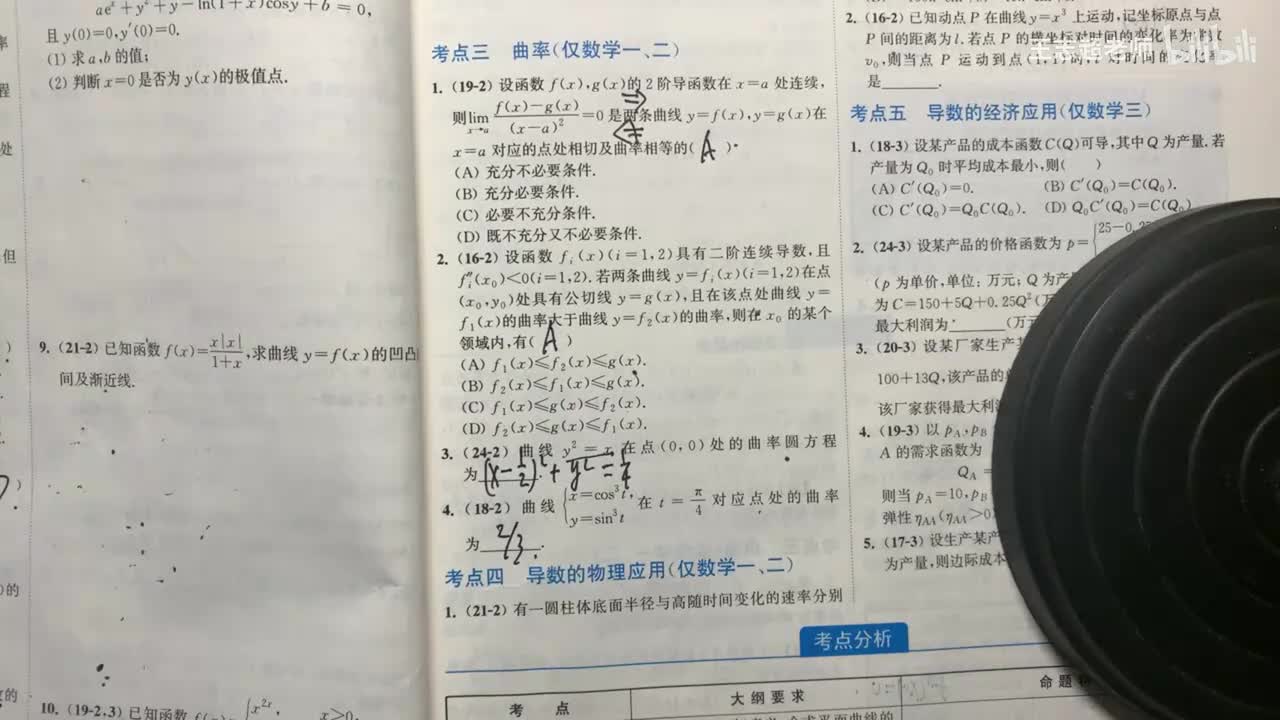 ae^x+y^2+y-ln(1+x)cosy+b=0,
且 y(0)=0,y′(0)=0.
(1) 求 a,b 的值;
(2) 判断 x=0 是否为 y(x)的极值点.
9. (21-2) 已知函数 f(x)=x|x|/(1+x),求曲线 y=f(x)的凹凸
间及渐近线.
10. (19-2,3) 已知函数
x^{2x}, x>0,
考点三 曲率(仅数学一、二)
1. (19-2) 设函数 f(x),g(x)的 2 阶导函数在 x=a 处连续,
则lim_{x→a} (f(x)-g(x))/(x-a)^2=0 是两条曲线 y=f(x),y=g(x)在
x=a 对应的点处相切及曲率相等的( A ).
(A) 充分不必要条件.
(B) 充分必要条件.
(C) 必要不充分条件.
(D) 既不充分又不必要条件.
2. (16-2) 设函数 f_i(x)(i=1,2)具有二阶连续导数,且
f″_i(x_0)<0(i=1,2).若两条曲线 y=f_i(x)(i=1,2)在点
(x_0,y_0)处具有公切线 y=g(x),且在该点处曲线 y=
f_1(x)的曲率大于曲线 y=f_2(x)的曲率,则在 x_0 的某个
领域内,有( A )
(A) f_1(x)≤f_2(x)≤g(x).
(B) f_2(x)≤f_1(x)≤g(x).
(C) f_1(x)≤g(x)≤f_2(x).
(D) f_2(x)≤g(x)≤f_1(x).
3. (24-2) 曲线 y^2=x 在点(0,0)处的曲率圆方程
为 (x-1/2)^2+y^2=1/4
4. (18-2) 曲线 {x=cos^3t, y=sin^3t 在 t=π/4 对应点处的曲率
为 2/3.
考点四 导数的物理应用(仅数学一、二)
1. (21-2) 有一圆柱体底面半径与高随时间变化的速率分别
2. (16-2) 已知动点 P 在曲线 y=x^3 上运动,记坐标原点与点
P 间的距离为 l.若点 P 的横坐标对时间的变化率为常数
v_0,则当点 P 运动到点
是______.
考点五 导数的经济应用(仅数学三)
1. (18-3) 设某产品的成本函数C(Q)可导,其中 Q 为产量.若
产量为 Q_0 时平均成本最小,则( )
(A) C′(Q_0)=0. (B) C′(Q_0)=C(Q_0).
(C) C′(Q_0)=Q_0C(Q_0). (D) Q_0C′(Q_0)=C(Q_0)
2. (24-3) 设某产品的价格函数为 p={25-0.25
(p 为单价,单位: 万元; Q 为产
为 C=150+5Q+0.25Q^2(万
最大利润为______(万
3. (20-3) 设某厂家生产某
100+13Q,该产品的
该厂家获得最大利
4. (19-3) 以 p_A,p_B
A 的需求函数为
Q_A =
则当 p_A=10,p_B
弹性 η_AA(η_AA>0
5. (17-3) 设生产某产
为产量,则边际成本
考点分析
考 点 大 纲 要 求 命 题
bilibili